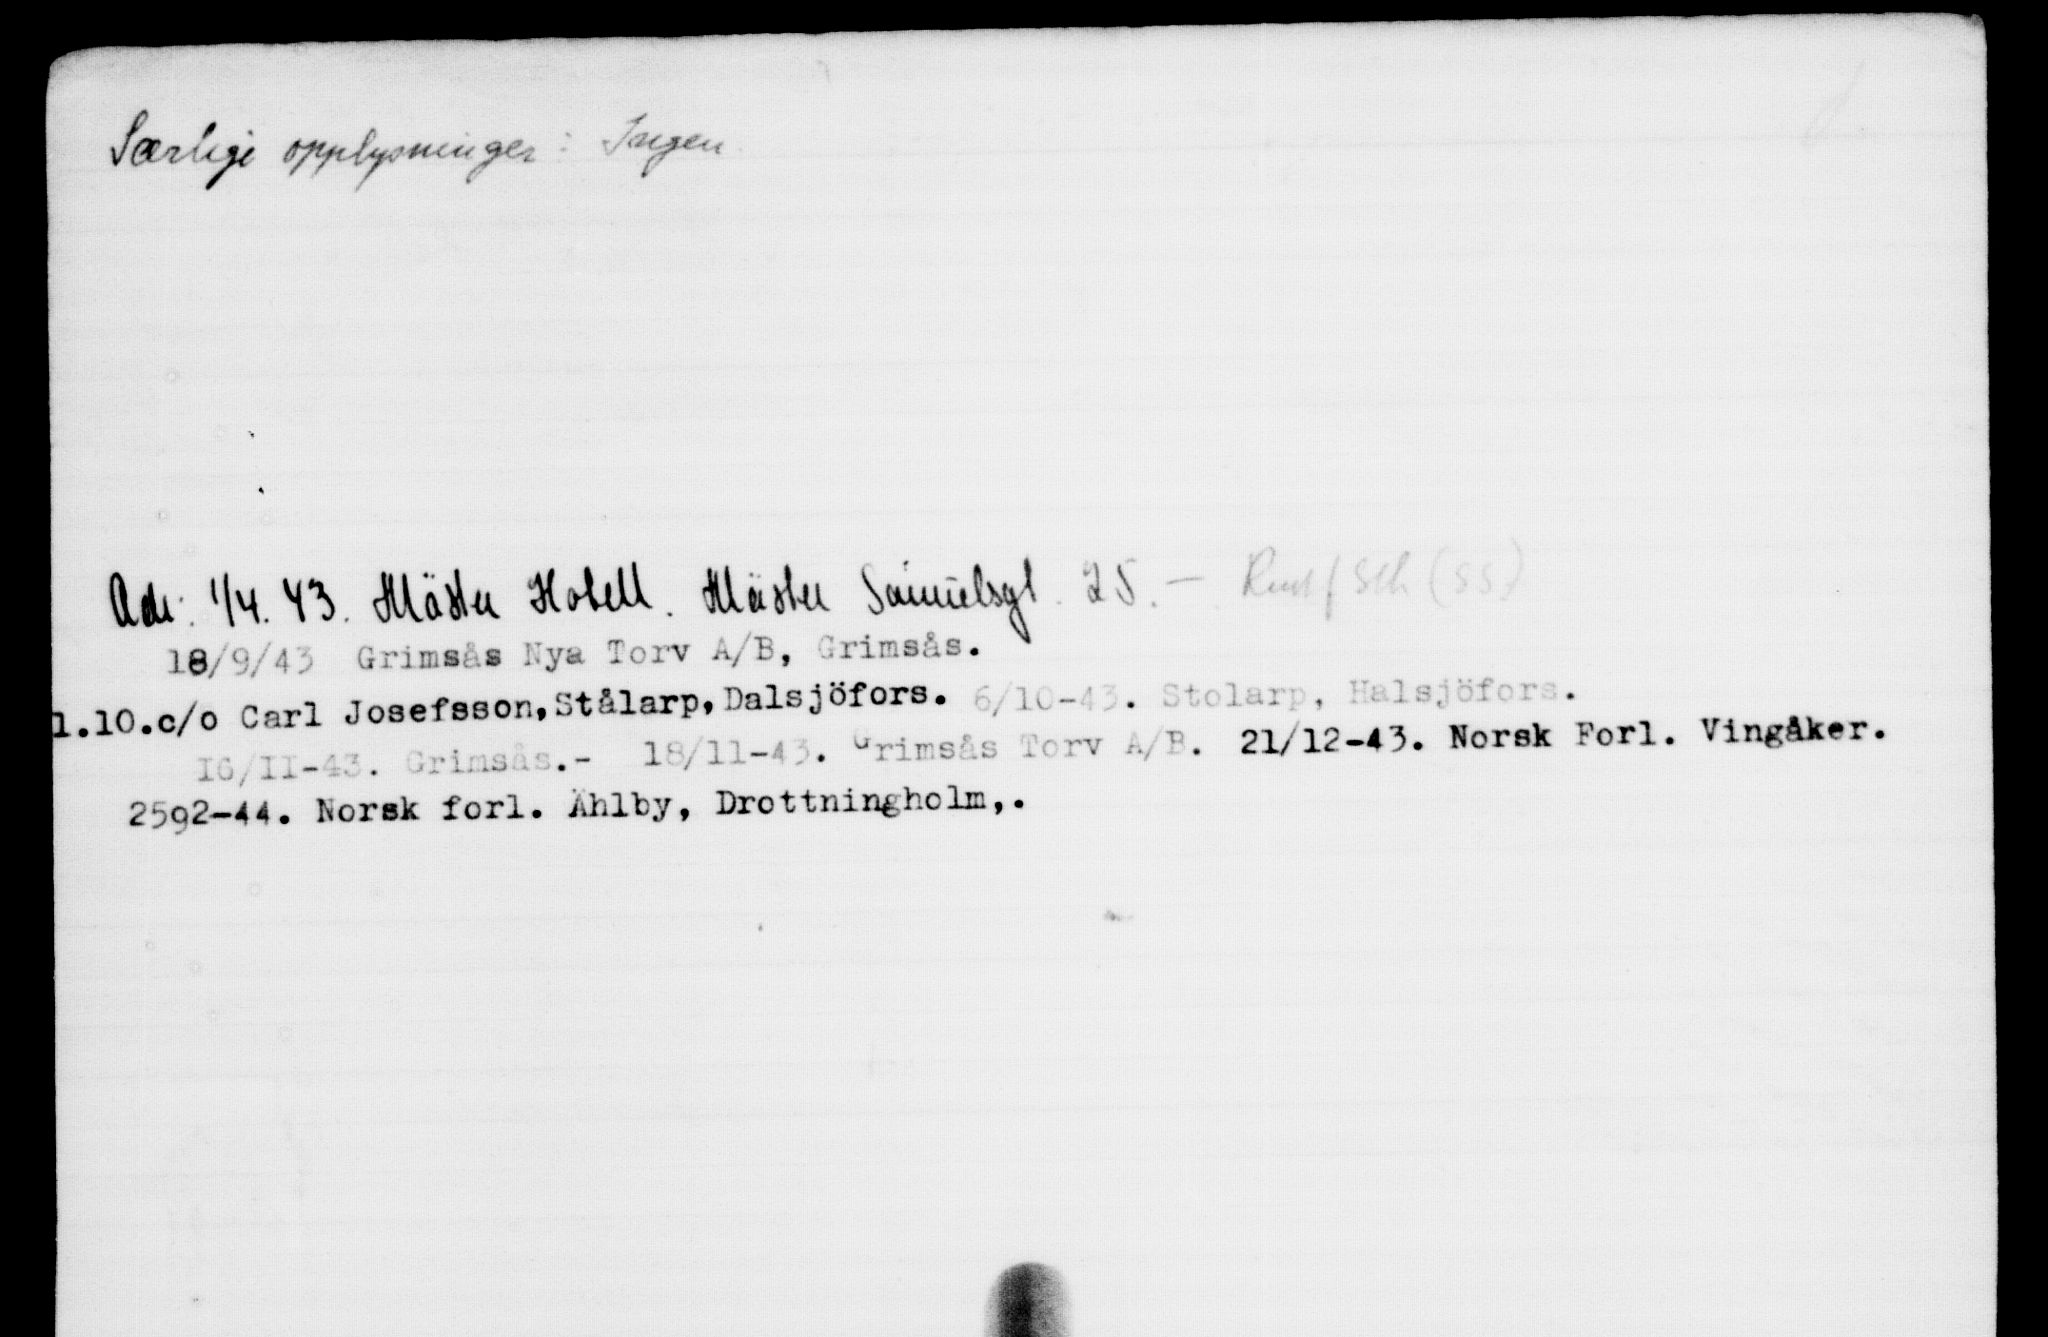 Særlige opplysninger: Ingen
Adr: 1/4.43. Mäster Hotell. Mäster Samuelsgt. 25. —
18/9/43 Grimsås Nya Torv A/B, Grimsås.
1.10.c/o Carl Josefsson,Stålarp,Dalsjöfors. 6/10-43. Stolarp, Halsjöfors.
I6/II-43. Grimsås.- 18/11-43. Grimsås Torv A/B. 21/12-43. Norsk Forl. Vingåker.
2592-44. Norsk forl. Åhlby, Drottningholm,.